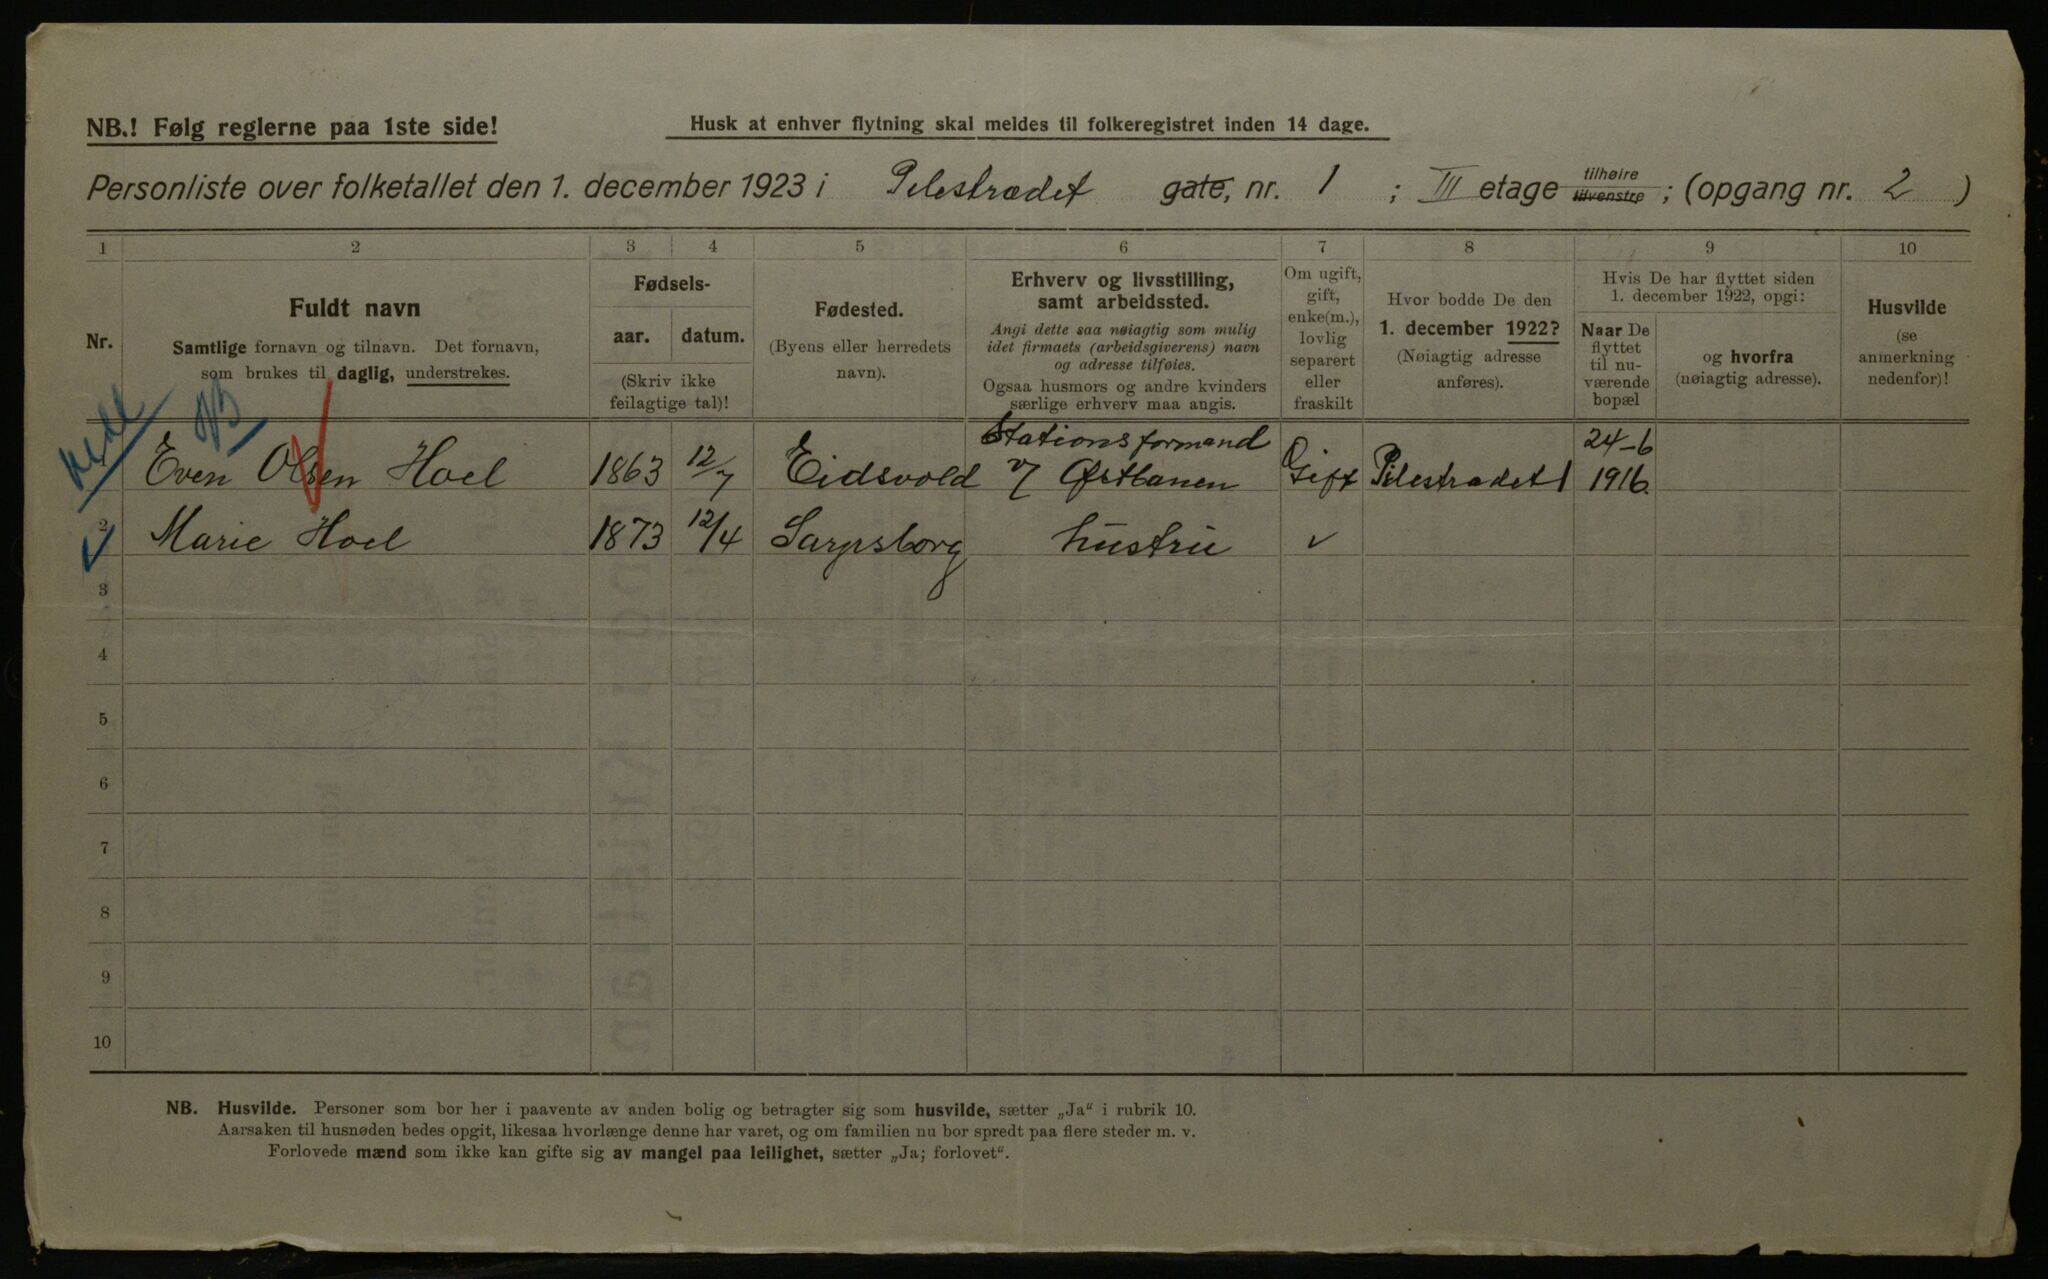 NB.! Følg reglerne paa 1ste side!
Husk at enhver flytning skal meldes til folkeregistret inden 14 dage.
Personliste over folketallet den 1. december 1923 i Pilestrædet gate, nr. 1 ; III etage tilhøire tilvenstre ; (opgang nr. 2 )
1 2 3 4 5 6 7 8 9 10
Nr.
Fuldt navn
Samtlige fornavn og tilnavn. Det fornavn,
som brukes til daglig, understrekes.
Fødsels-
aar. datum.
(Skriv ikke
feilagtige tal)!
Fødested.
(Byens eller herredets
navn).
Erhverv og livsstilling,
samt arbeidssted.
Angi dette saa nøiagtig som mulig
idet firmaets (arbeidsgiverens) navn
og adresse tilføies.
Ogsaa husmors og andre kvinders
særlige erhverv maa angis.
Om ugift,
gift,
enke(m.),
lovlig
separert
eller
fraskilt
Hvor bodde De den
1. december 1922?
(Nøiagtig adresse
anføres).
Hvis De har flyttet siden
1. december 1922, opgi:
Naar De
flyttet
til nu-
værende
bopæl
og hvorfra
(nøiagtig adresse).
Husvilde
(se
anmerkning
nedenfor)!
NB
Even Olsen Hoel 1863 12/7 Eidsvold Stationsformand v/ Østbanen Gift Pilestrædet 1 24-6 1916.
2 Marie Hoel 1873 12/4 Sarpsborg hustru v
3
4
5
6
7
8
9
10
NB. Husvilde. Personer som bor her i paavente av anden bolig og betragter sig som husvilde, sætter „Ja“ i rubrik 10.
Aarsaken til husnøden bedes opgit, likesaa hvorlænge denne har varet, og om familien nu bor spredt paa flere steder m. v.
Forlovede mænd som ikke kan gifte sig av mangel paa leilighet, sætter „Ja; forlovet“.